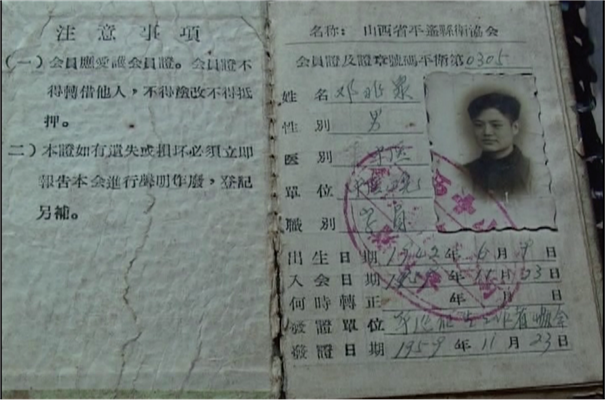 注意事項
(一)会員應爱護会員證。会員證不
得轉借他人，不得塗改不得抵
押。
二)本證如有遺失或損坏必須立卽
報告本会進行聲明作廢，登記
另補。
名称：山西省平遙縣衛協会
会員證及證章號碼平衛第0305
姓名
性別 男
医別 中医
單位
職別
出生日期 1942年6月9日
入会日期 1959年11月23日
何時轉正 年 月 日
發證單位
發證日期 1959年11月23日